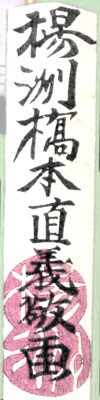 楊洲橋本直義敬画